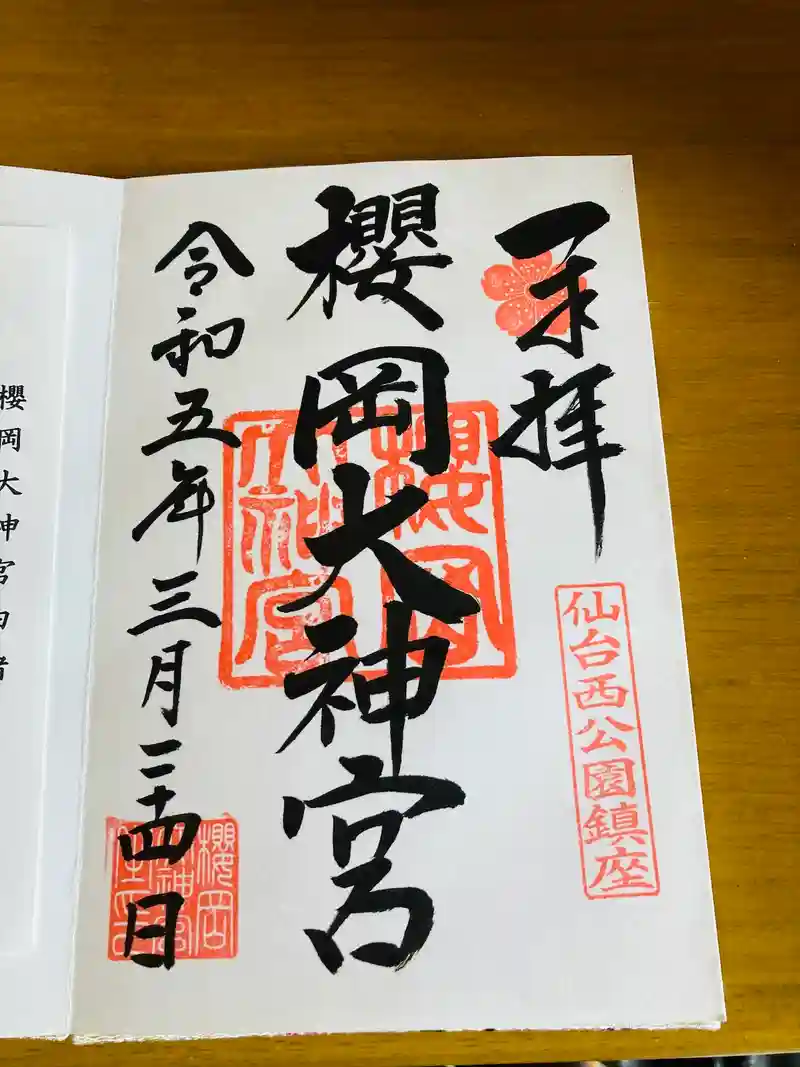 奉拝
仙台西公園鎮座
櫻岡大神宮
櫻岡
大神宮
令和五年三月二十四日
櫻岡大神宮由緒